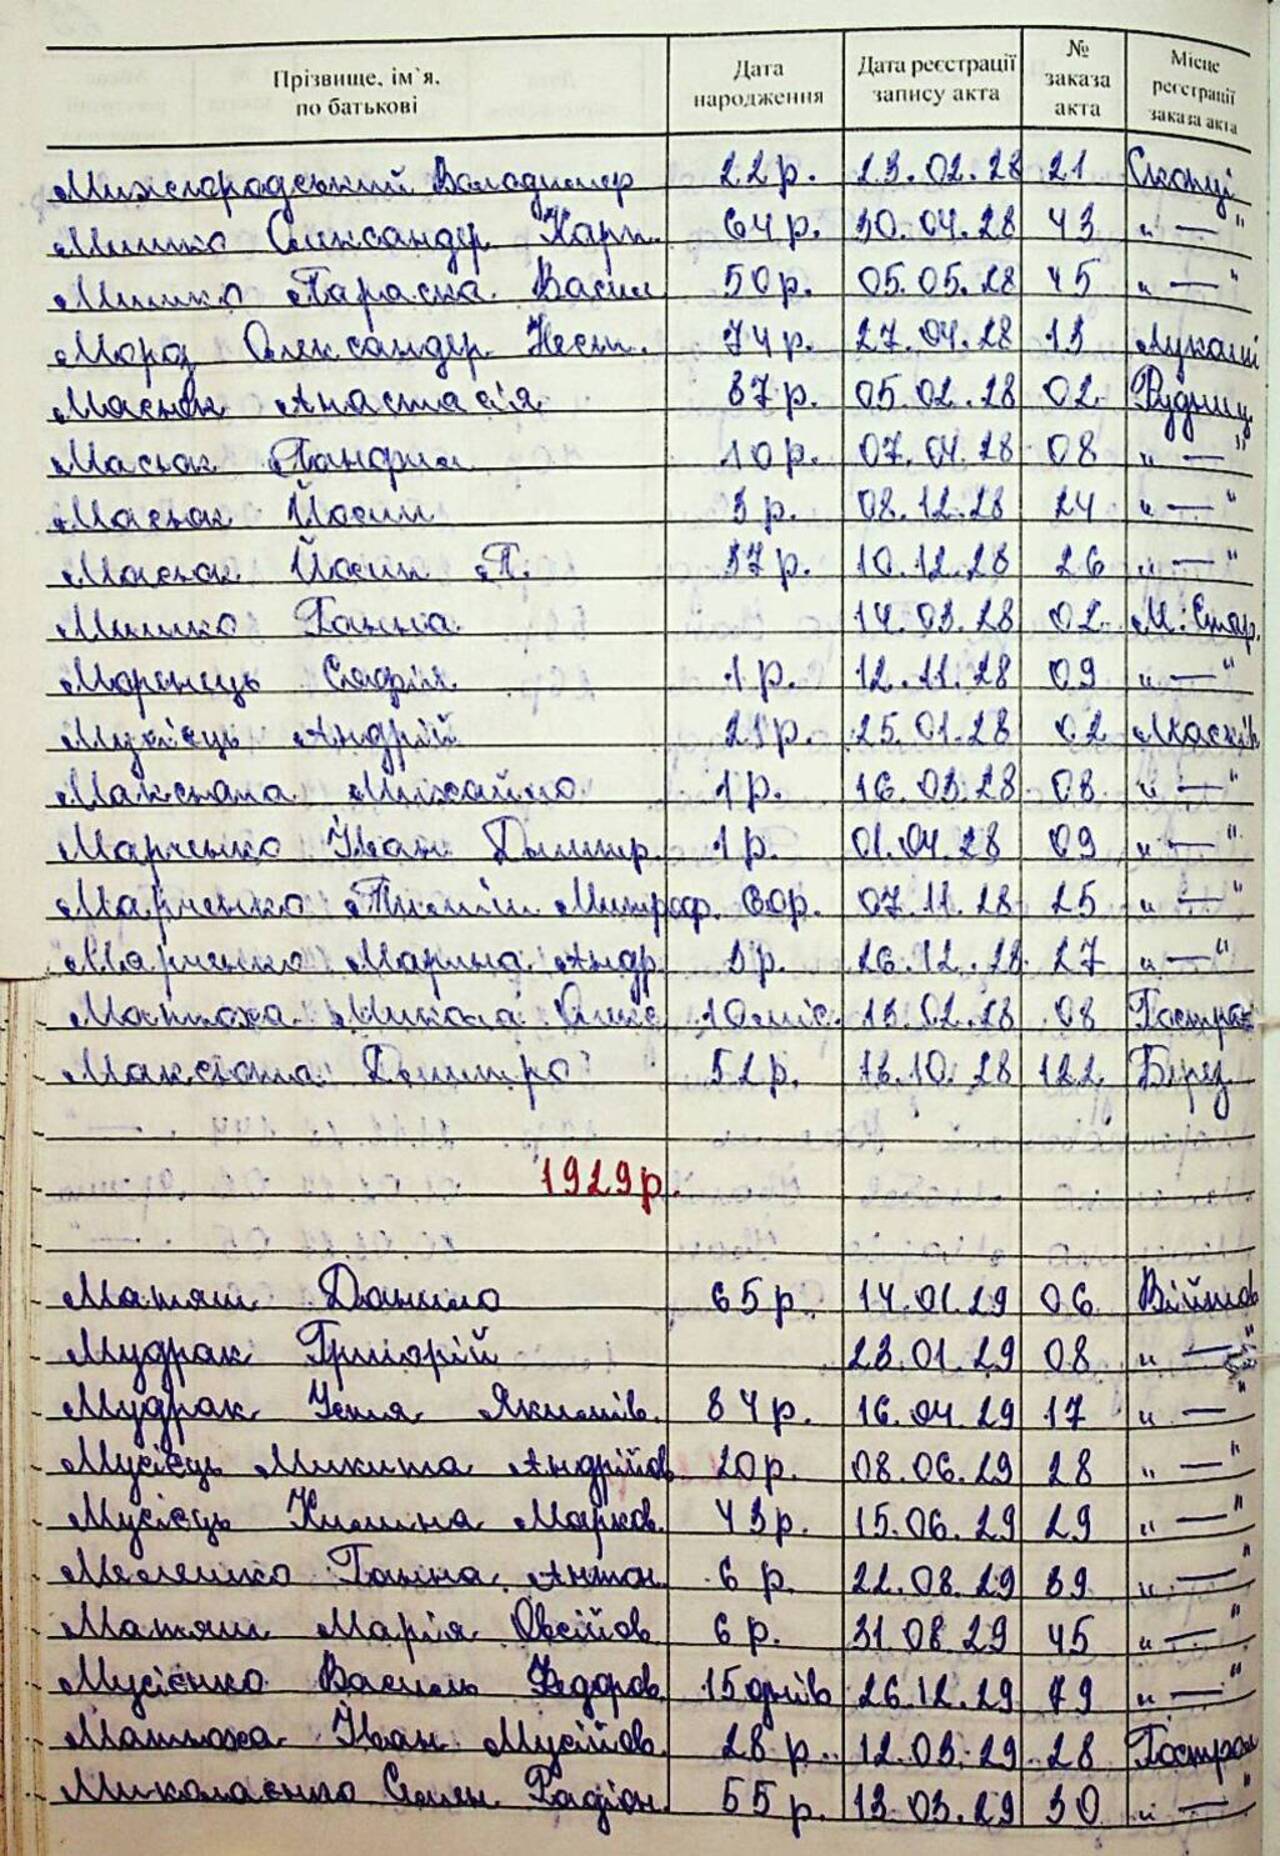 Прізвище, ім`я, по батькові Дата народження Дата реєстрації запису акта № заказа акта Місце реєстрації заказа акта
Володимир 22 р. 23.02.28 21 Скопці
Мишко Олександер Карп. 64 р. 30.04.28 43 "—"
Мишко Параска Васил 50 р. 05.05.28 45 "—"
Мороз Олександер Нест. 74 р. 27.04.28 13 Лукаші
Масюк Анастасія 37 р. 05.02.28 02 Рудниц
Масюк 10 р. 07.04.28 08 "—"
Масюк Йосип 3 р. 08.12.28 24 "—"
Масюк Йосип П. 37 р. 10.12.28 26 "—"
Мишко Ганна 14.03.28 02 М. Стар.
Маренець Софія 1 р. 12.11.28 09 "—"
Андрій 21 р. 25.01.28 02 Масків
Максюта Михайло 1 р. 16.03.28 08 "—"
Марченко Іван Дмитр. 1 р. 01.04.28 09 "—"
Марченко Митроф. 60р. 07.11.28 25 "—"
Марченко Марина Андр. 3 р. 26.12.28 27 "—"
Матюха Микола Олекс 10 міс. 13.02.28 08
Максюта Дмитро 52 р. 16.10.28 122 Берез.
1929 р.
Матяш Данило 65 р. 14.01.29 06 Війтов
Мудрак Григорій 23.01.29 08 "—"
Мудрак Устя Якимів. 84 р. 16.04.29 17 "—"
Мусієць Микита Андрійов 20 р. 08.06.29 28 "—"
Мусієць Килина Марков. 43 р. 15.06.29 29 "—"
Мелешко Ганна Антон. 6 р. 22.08.29 39 "—"
Матяш Марія Овсійов 6 р. 31.08.29 45 "—"
Мусієнко Василь Федоров. 15 днів 26.12.29 79 "—"
Матюха Іван Мусійов. 28 р. 12.03.29 28
Миколаєнко Семен Радіон. 55 р. 13.03.29 30 "—"